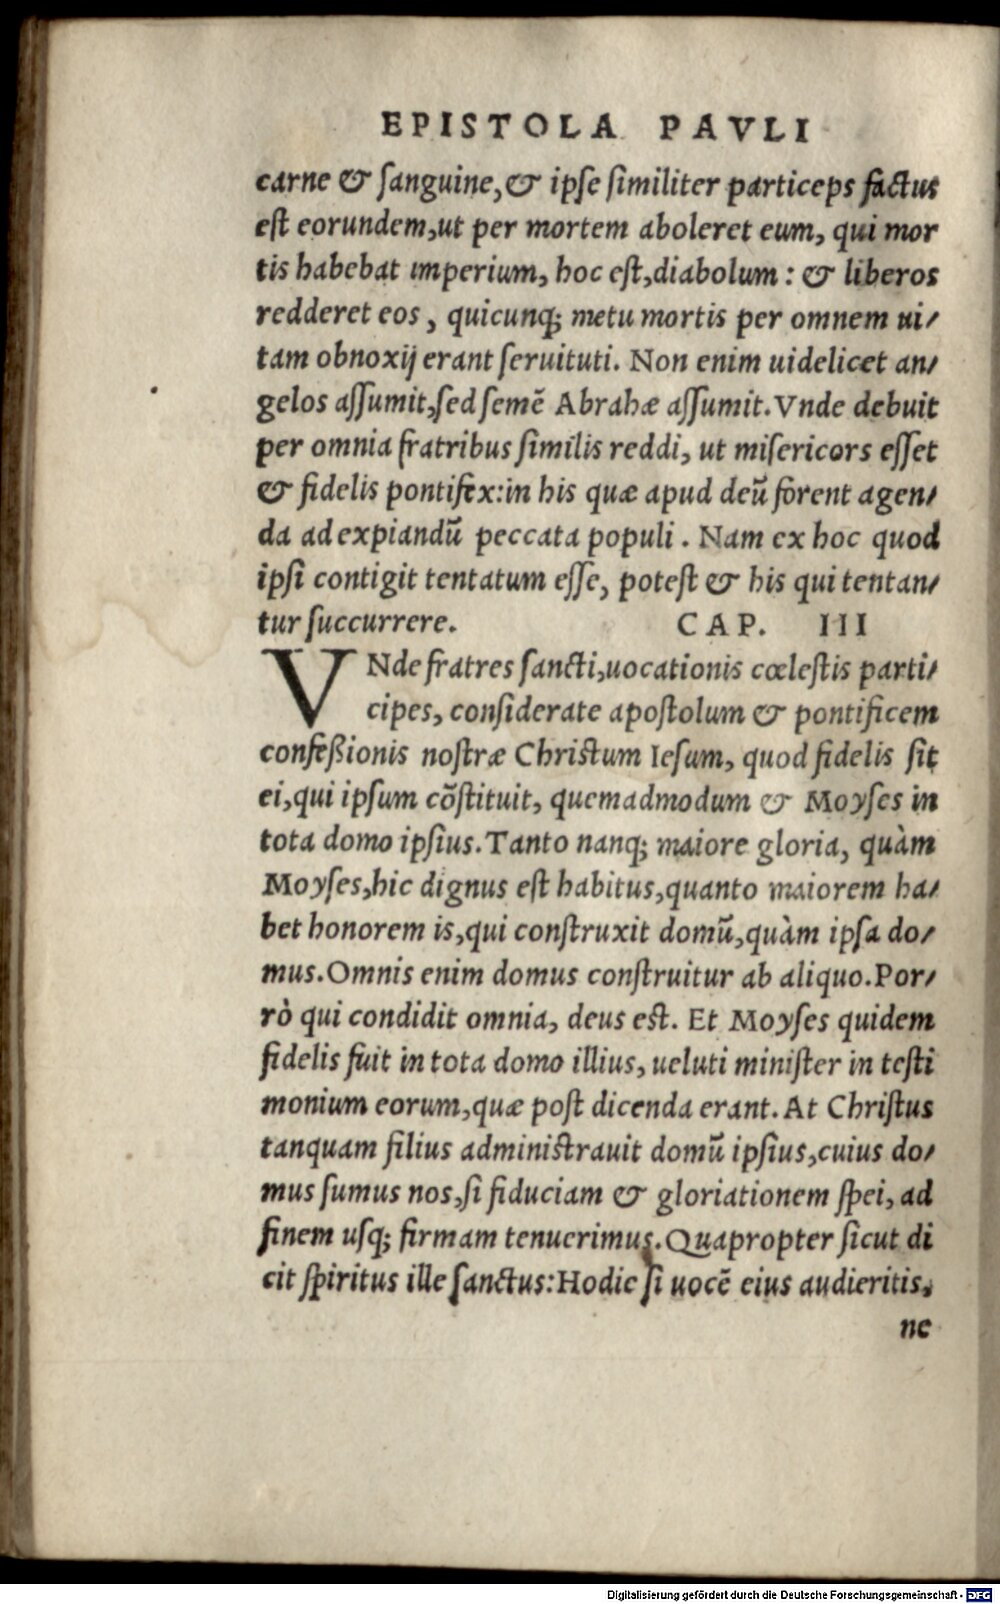 EPISTOLA PAVLI
carne & ſanguine,& ipſe ſimiliter particeps factus
eſt eorundem,ut per mortem aboleret eum, qui mor
tis habebat imperium, hoc eſt,diabolum : & liberos
redderet eos , quicunq; metu mortis per omnem ui/
tam obnoxij erant ſeruituti. Non enim uidelicet an/
gelos aſſumit,ſed ſemē Abrahæ aſſumit.Vnde debuit
per omnia fratribus ſimilis reddi, ut miſericors eſſet
& fidelis pontifex:in his quæ apud deū forent agen/
da ad expiandū peccata populi . Nam ex hoc quod
ipſi contigit tentatum eſſe, poteſt & his qui tentan/
tur ſuccurrere. CAP. III
VNde fratres ſancti,uocationis cœleſtis parti/
cipes, conſiderate apoſtolum & pontificem
confeßionis noſtræ Chriſtum Ieſum, quod fidelis ſit
ei,qui ipſum cōſtituit, quemadmodum & Moyſes in
tota domo ipſius.Tanto nanq; maiore gloria, quàm
Moyſes,hic dignus eſt habitus,quanto maiorem ha/
bet honorem is,qui conſtruxit domū,quàm ipſa do/
mus.Omnis enim domus conſtruitur ab aliquo.Por/
rò qui condidit omnia, deus eſt. Et Moyſes quidem
fidelis fuit in tota domo illius, ueluti miniſter in teſti
monium eorum,quæ poſt dicenda erant.At Chriſtus
tanquam filius adminiſtrauit domū ipſius,cuius do/
mus ſumus nos,ſi fiduciam & gloriationem ſpei, ad
finem uſq; firmam tenuerimus.Quapropter ſicut di
cit ſpiritus ille ſanctus:Hodie ſi uocē eius audieritis,
ne
Digitalisierung gefördert durch die Deutsche Forschungsgemeinschaft - DFG